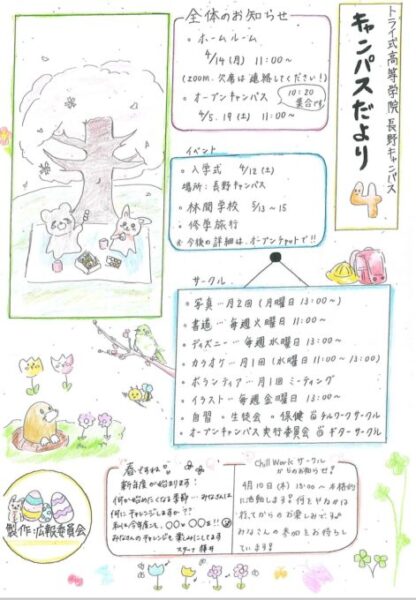 トライ式高等学院 長野キャンパス
キャンパスだより
4
全体のお知らせ
・ホームルーム
4/14(月) 11:00〜
(zoom、欠席は連絡してください!)
・オープンキャンパス
10:20
集合です
4/5.19(土) 11:00〜
イベント
・入学式 4/12(土)
場所:長野キャンパス
・林間学校 5/13〜15
・修学旅行
※今後の詳細は、オープンチャットで!!
サークル
・写真…月2回(月曜日13:00〜)
・書道…毎週火曜日 11:00〜
・ディズニー…毎週水曜日 13:00〜
・カラオケ…月1回(水曜日 11:00〜 13:00)
・ボランティア…月1回ミーティング
・イラスト…毎週金曜日 13:00〜
・自習 ・生徒会 ・保健 ・チルワークサークル
・オープンキャンパス実行委員会 ・ギターサークル
春ですね
新年度が始まります!
何か始めたくなる季節…みなさんは
何にチャレンジしますか??
私は今年度こそ、○○♥○○を!!
みなさんのチャレンジも楽しみにしてます
スタッフ 藤井
Chill Work サークル
からのお知らせ!
4月10日(木) 13:00〜 本格的
に活動します!何をやるかは
来てからのお楽しみです。
みなさんの参加をお待ちし
ています!
製作:広報委員会